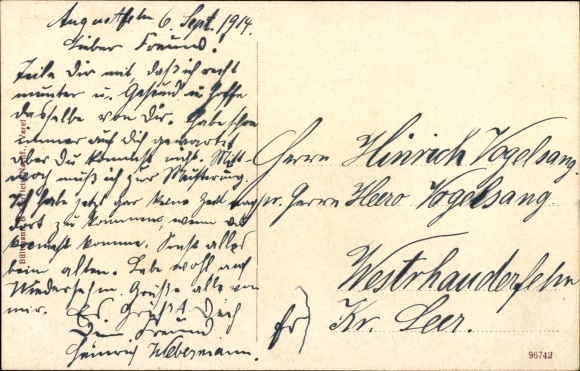 Augustfehn 6. Sept. 1914.
Lieber Freund!
Teile Dir mit, daß ich recht
munter u. Gesund u. hoffe
dasselbe von Dir. Habe schon
immer auf Dich gewartet
aber Du kommst nicht. Mitt-
woch muß ich zur Musterung.
Ich habe jetzt gar keine Zeit
dort zu kommen, wenn
komme. Sonst alles
beim alten. Lebe wohl, auf
Wiedersehn. Grüße alle von
mir. Es Grüßt Dich
Dein Freund
Heinrich Webermann.
Herrn Hinrich Vogelsang.
pr. Herrn Heero Vogelsang
Westrhauderfehn
Kr. Leer.
Varel
96742